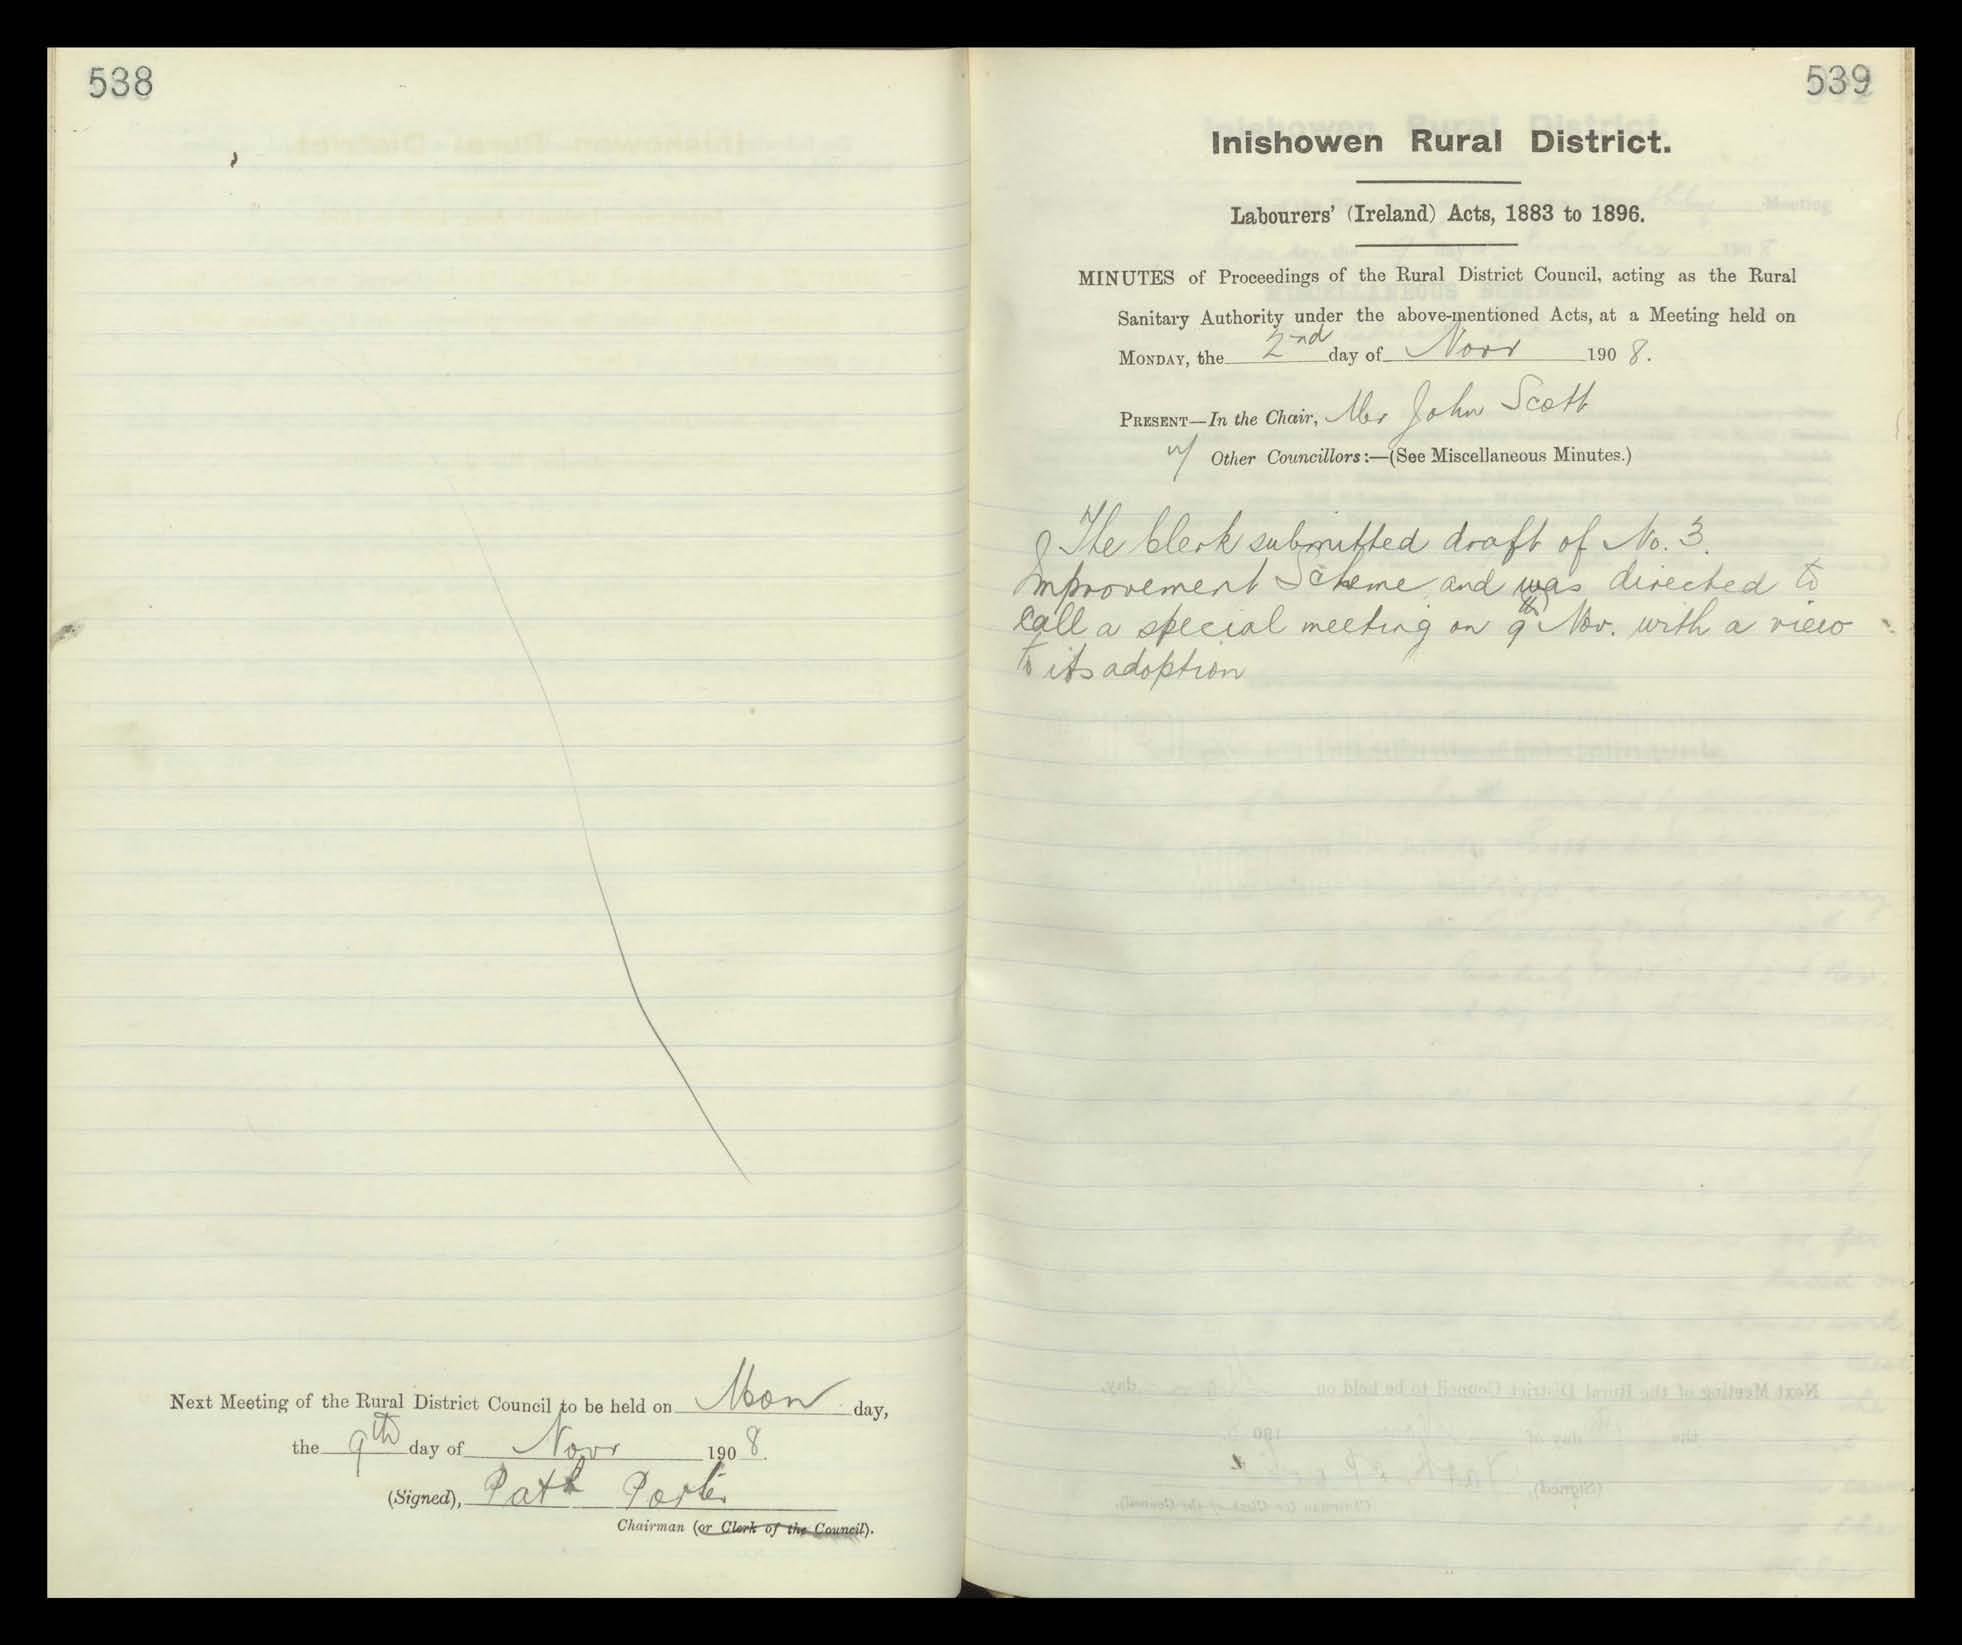 538
Next Meeting of the Rural District Council to be held on Mon day,
the 9th day of Novr 1908.
(Signed), Patk Porter
Chairman (or Clerk of the Council).
539
Inishowen Rural District.
Labourers' (Ireland) Acts, 1883 to 1896.
MINUTES of Proceedings of the Rural District Council, acting as the Rural
Sanitary Authority under the above-mentioned Acts, at a Meeting held on
MONDAY, the 2nd day of Novr 1908.
PRESENT—In the Chair, Mr John Scott
Other Councillors:—(See Miscellaneous Minutes.)
The Clerk submitted draft of No. 3.
Improvement Scheme and was directed to
call a special meeting on 9th Nov. with a view
to its adoption